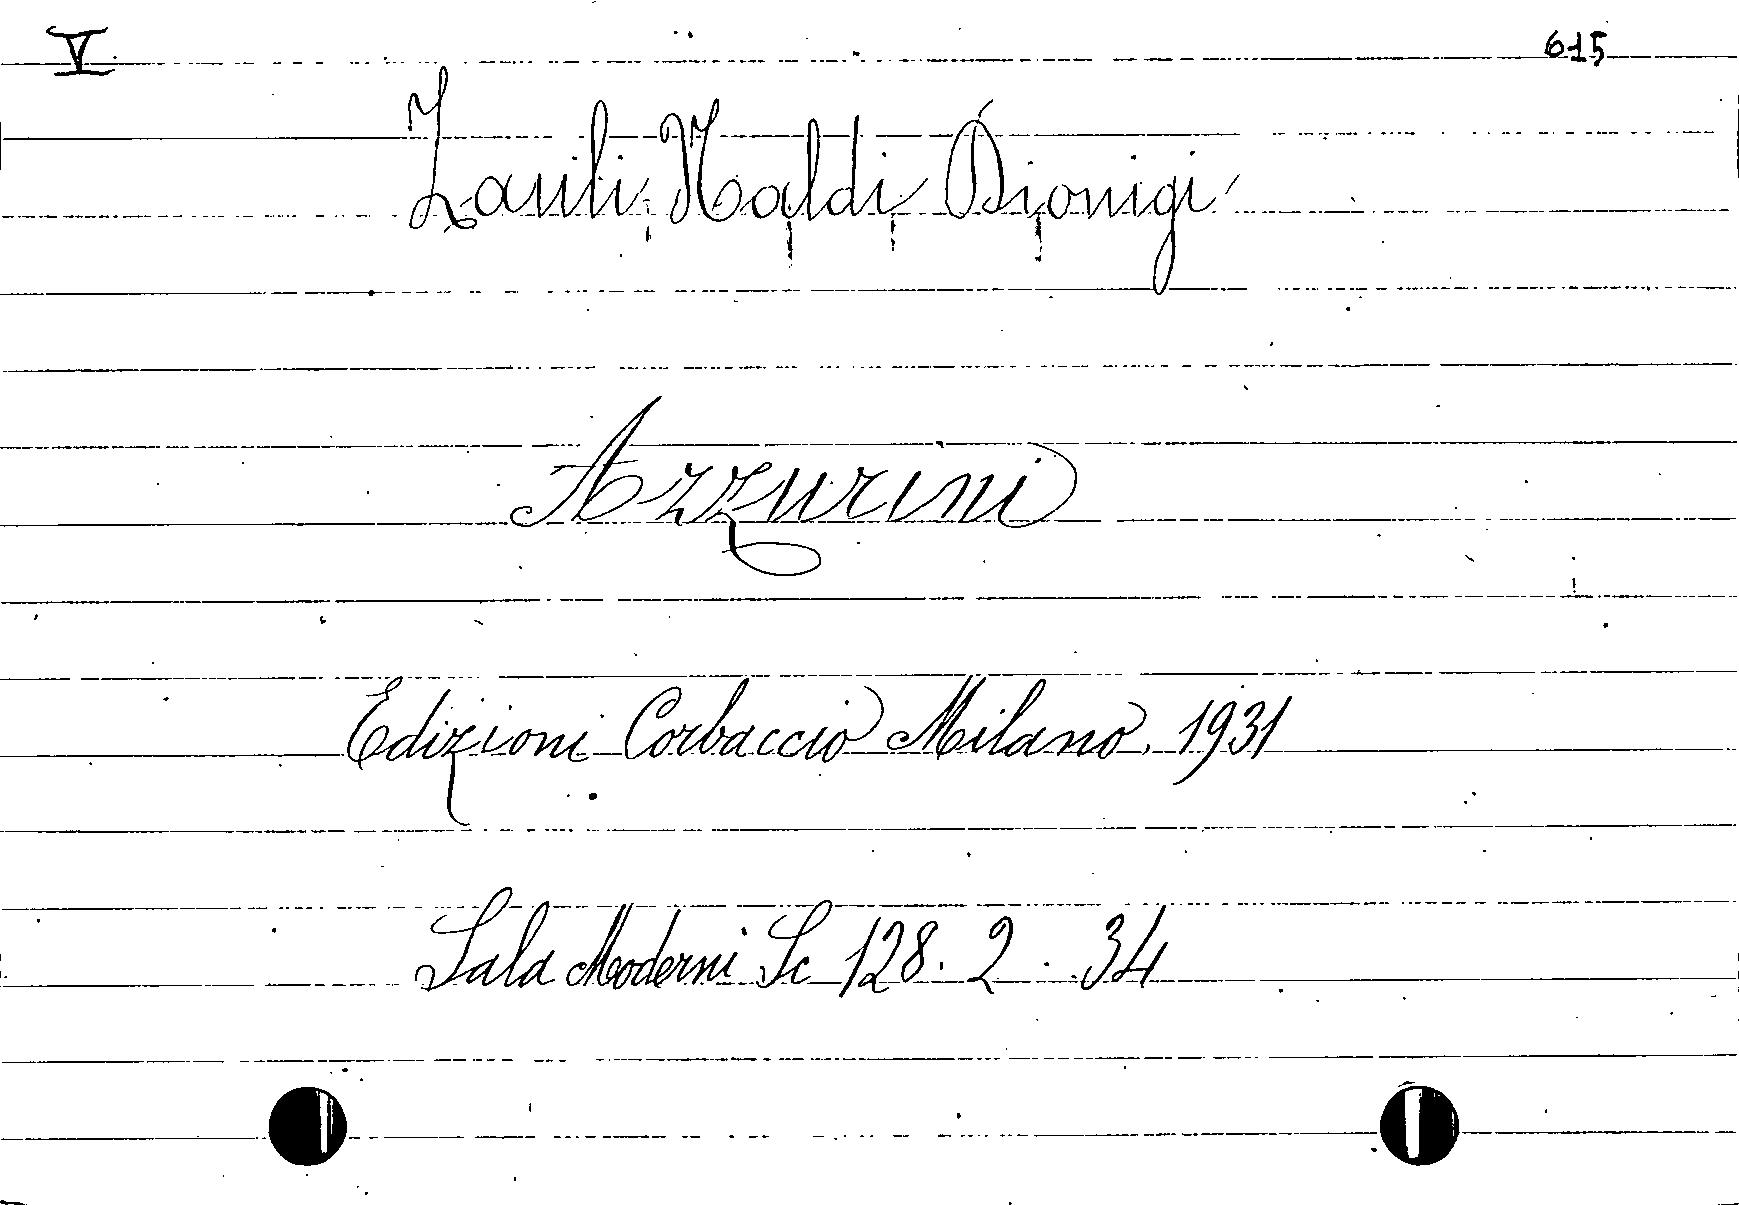 V 615
Zauli, Naldi, Dionigi
Azzurini
Edizioni Corbaccio Milano, 1931
Sala Moderni Sc 128. 2. 34